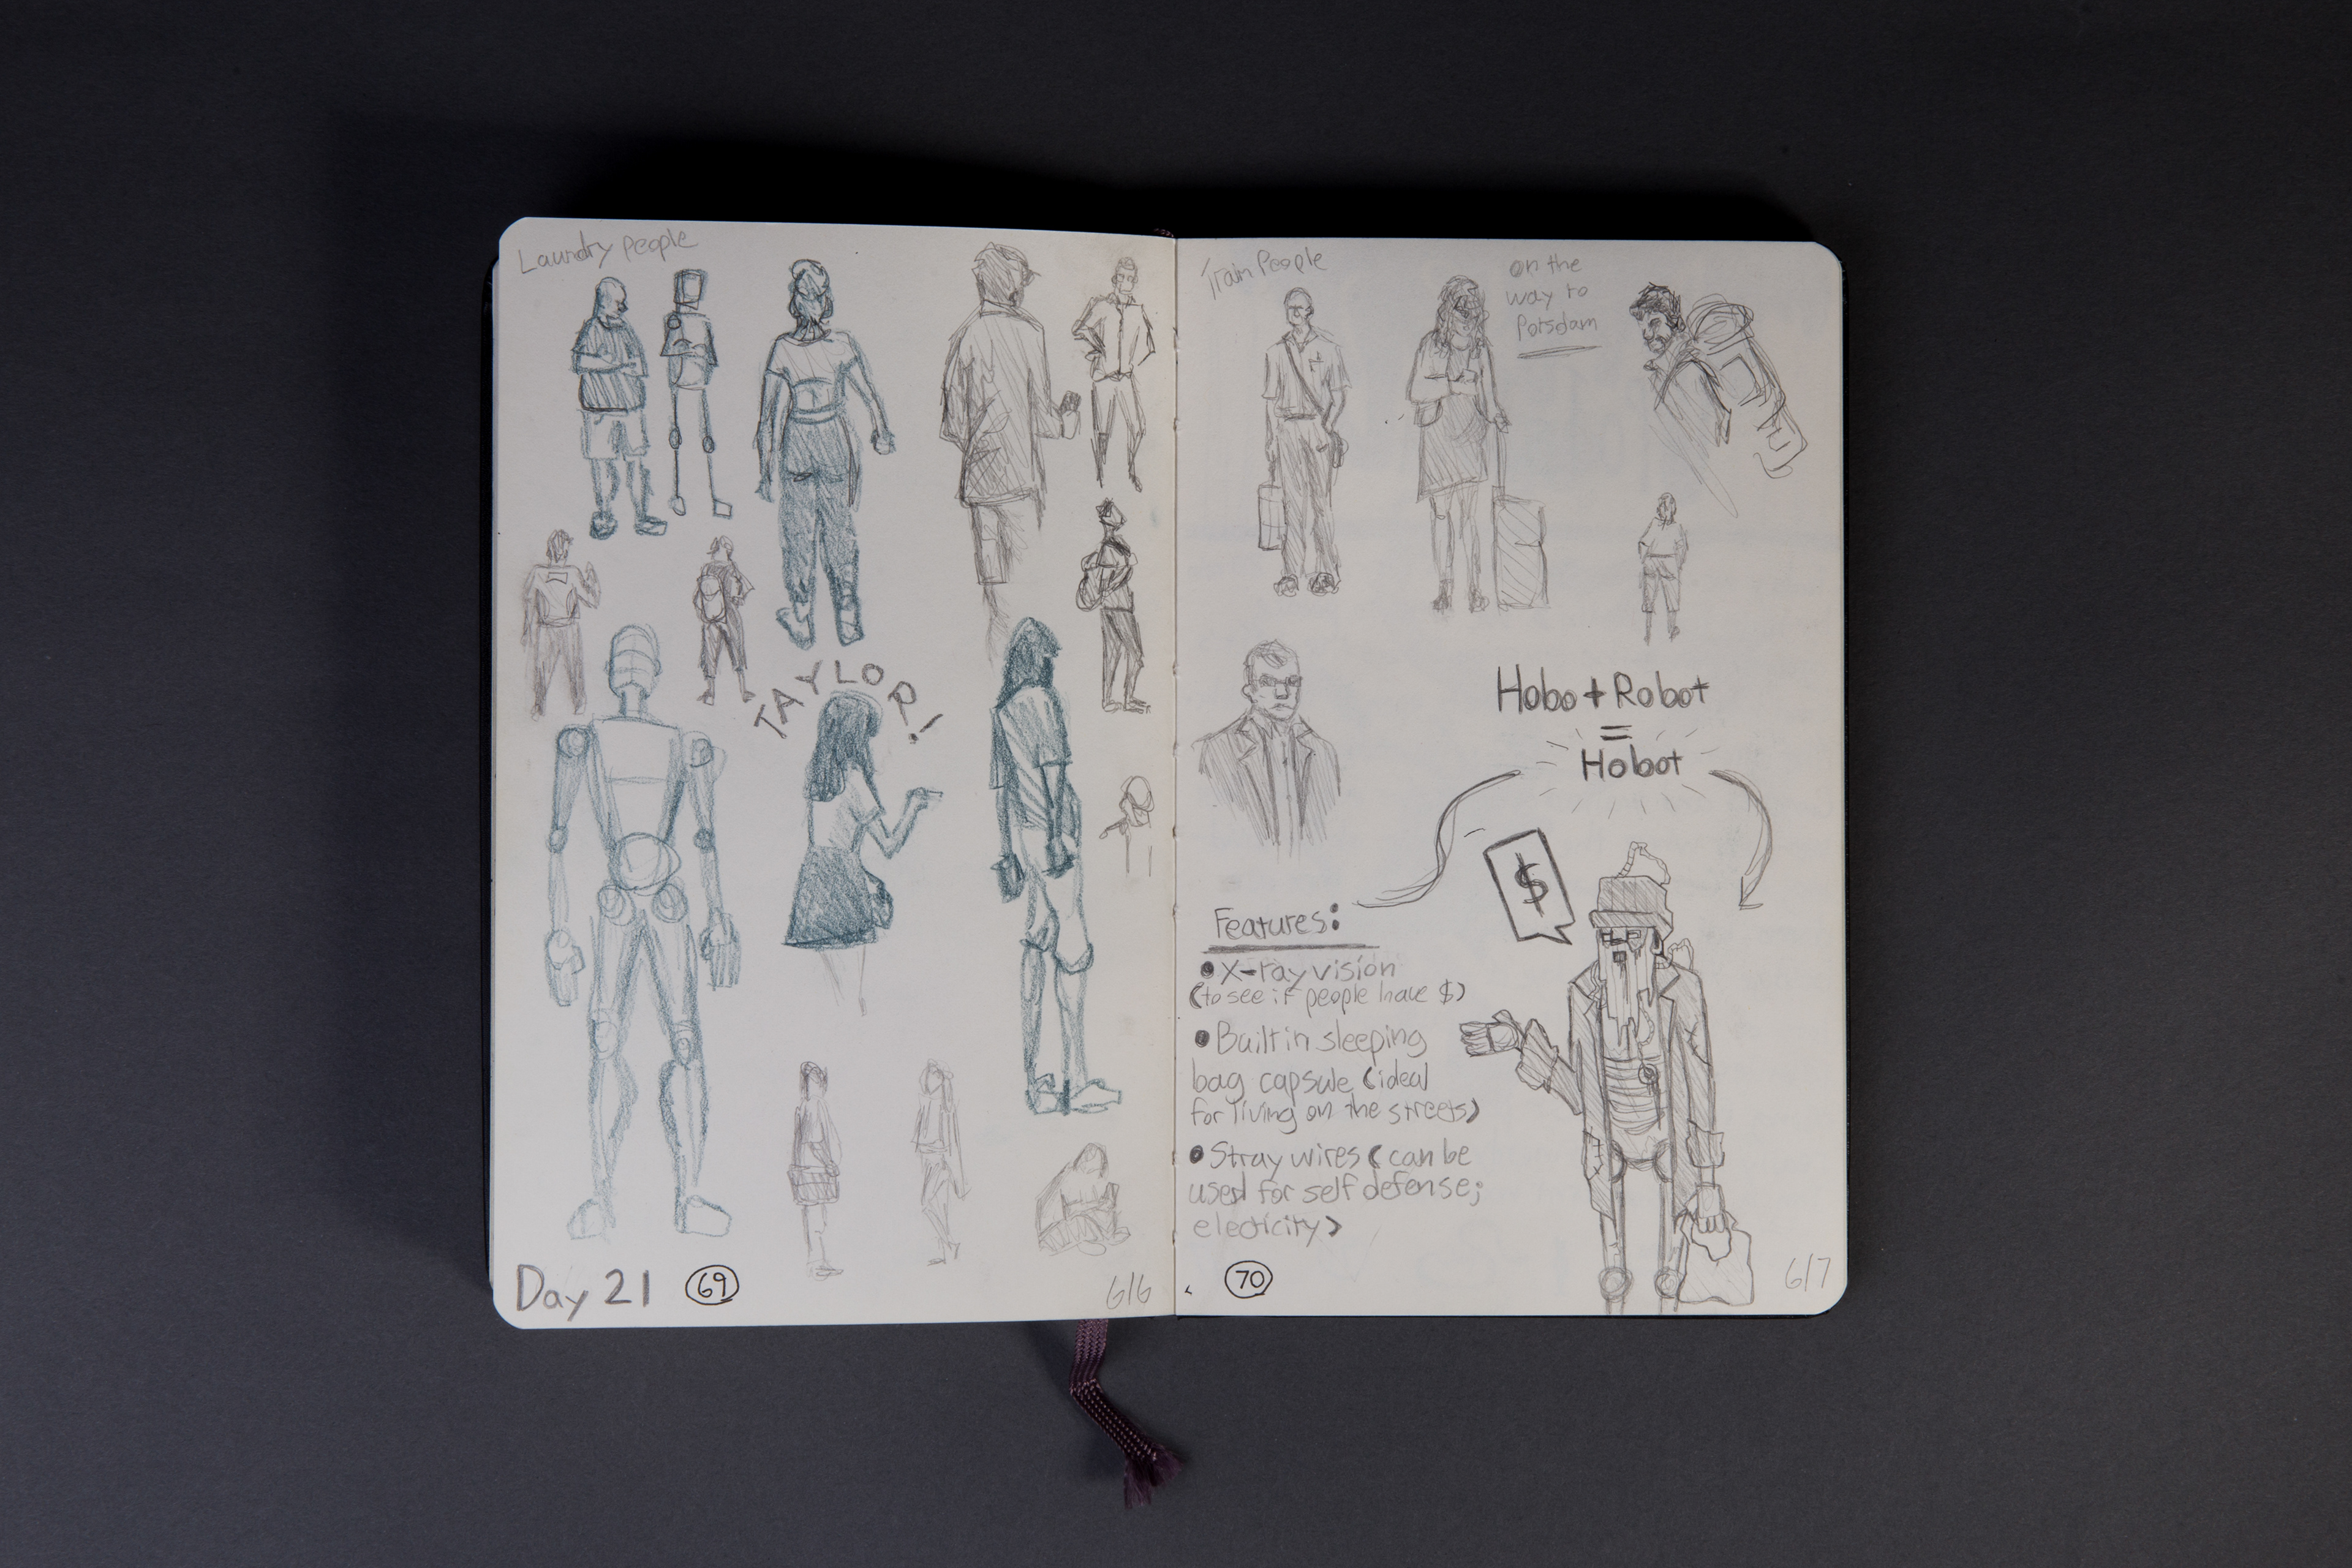 Laundry people
TAYLOR!
Day 21
69
6/6
Train People
on the
way to
Potsdam
Hobo + Robot
=
Hobot
$
Features:
• X-ray vision
(to see if people have $)
• Built in sleeping
bag capsule (ideal
for living on the streets)
• Stray wires (can be
used for self defense;
electicity)
70
6/7